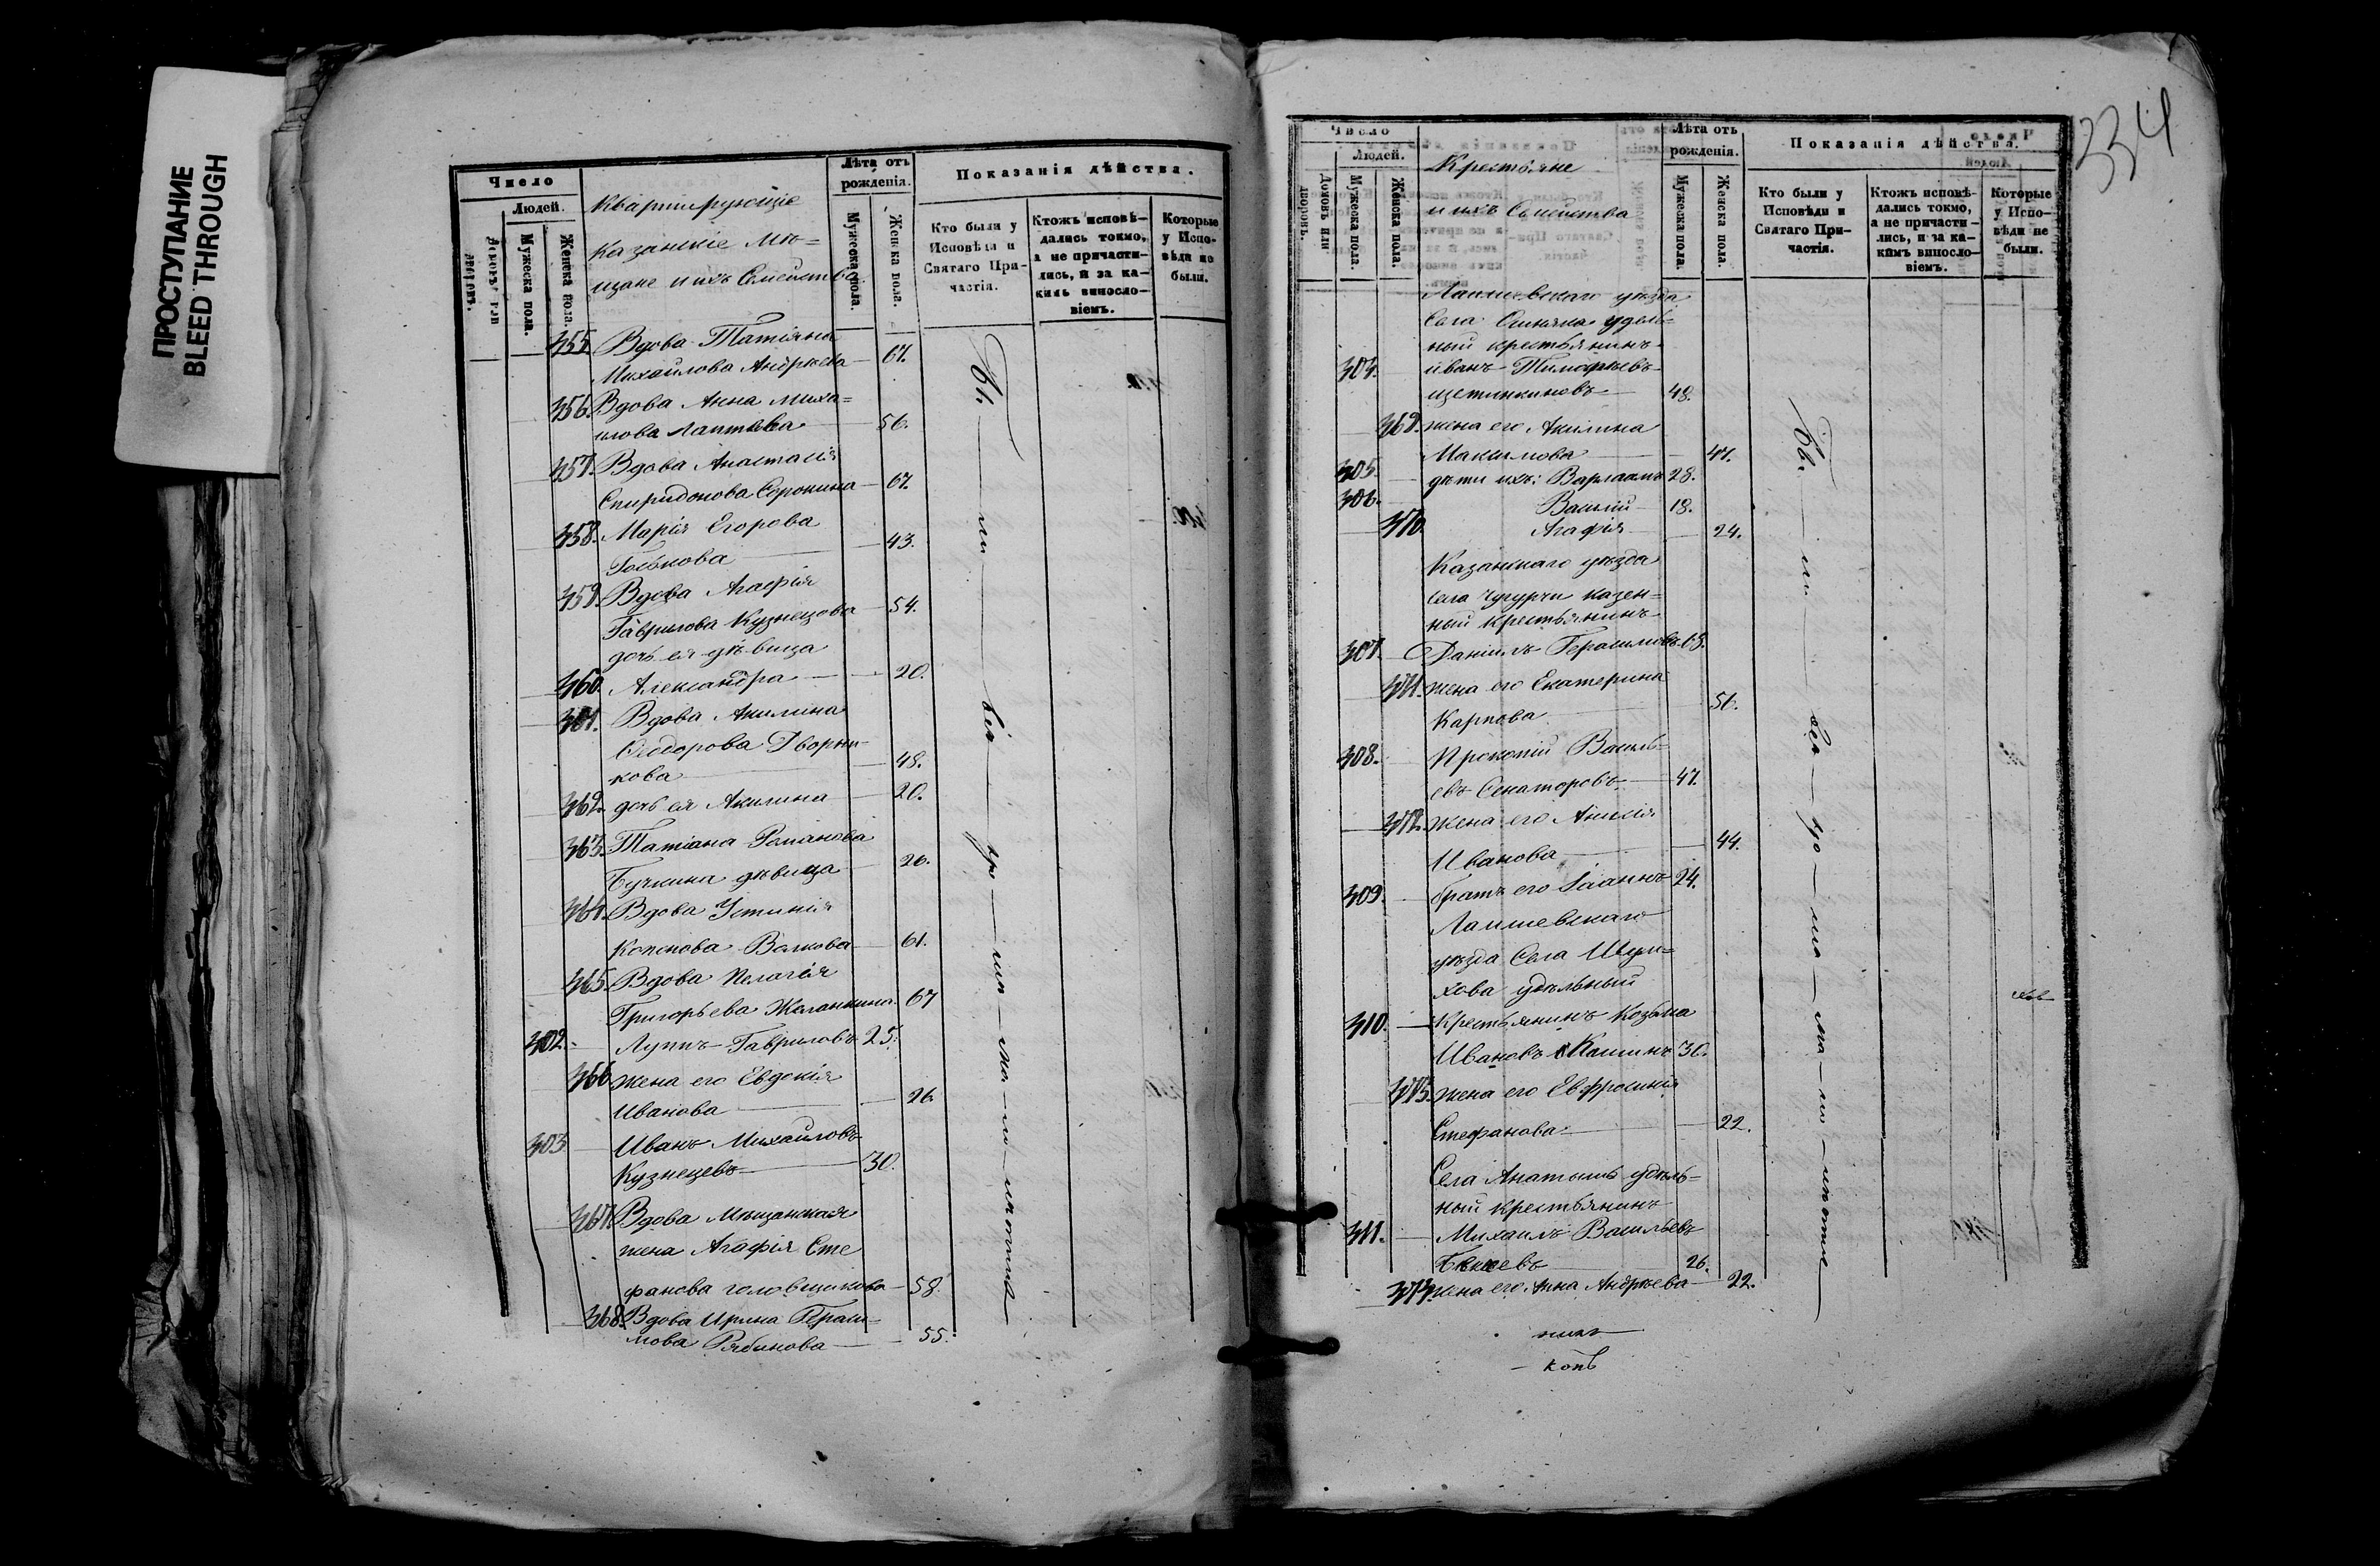 ПРОСТУПАНИЕ
BLEED THROUGH
Число
Людей.
Мужеска пола.
Женска пола.
Квартирующіе
Казанскіе Мѣ=
щане и ихъ Семейства
Лѣта отъ
рожденія.
Мужеска пола.
Женска пола.
Показанія дѣйства.
Кто были у
Исповѣди и
Святаго При-
частія.
Ктожъ исповѣ-
дались токмо,
а не причасти-
лись, и за ка-
кимъ винosло-
віемъ.
Которые
у Испо-
вѣди не
были.
455. Вдова Татіяна
Михайлова Андрѣева — 67.
456. Вдова Анна Миха=
илова Лаптѣва — 56.
457. Вдова Анастасія
Спиридонова Сорокина — 67.
458. Марія Егорова
43.
459. Вдова Агафія
Гаврилова Кузнецова — 54.
дочь ея дѣвица
460. Александра — 20.
461. Вдова Акилина
Ѳеодорова Дворни-
кова — 48.
462. дочь ея Акилина — 20.
463. Татіана Романова
Бучкина дѣвица — 26.
464. Вдова Устинія
Волкова — 61.
465. Вдова Пелагія
Григорьева 67
402. Лупъ Гавриловъ 25.
466 жена его Евдокія
Иванова — 26.
403 Иванъ Михайловъ
Кузнецевъ — 30.
467. Вдова Мѣщанская
жена Агафія Сте
фанова Головщикова — 58.
468. Вдова Ирина Гераси-
мова Рябинова — 55.
334
Число
Людей.
Домовъ или
дворовъ.
Мужеска пола.
Женска пола.
Крестьяне
и ихъ Семейства
Лѣта отъ
рожденія.
Мужеска пола.
Женска пола.
Показанія дѣйства.
Кто были у
Исповѣди и
Святаго При-
частія.
Ктожъ исповѣ-
дались токмо,
а не причасти-
лись, и за ка-
кимъ винosло-
віемъ.
Которые
у Испо-
вѣди не
были.
Лаишевскаго уѣзда
Села удѣль=
ный крестьянинъ
404. Иванъ Тимофѣевъ
Щетинкиновъ — 48.
469. жена его Акилина
Максимова — 47.
405. — дѣти ихъ: Варлаамъ 28.
406. Василій — 18.
470. Агафія — 24.
Казанскаго уѣзда
села Чугурчи казен=
ный крестьянинъ
407. Даніилъ Герасимовъ 68.
471. жена его Екатерина
Карпова — 56.
408. Прокопій Василь=
евъ Сенаторовъ — 47.
472. жена его Анисія
Иванова — 44.
409. — братъ его Іоаннъ 24.
Лаишевскаго
уѣзда Села Шум=
кова удѣльный
410. — крестьянинъ Козьма
Ивановъ Кашинъ 30.
473. жена его Евфросинія
Стефанова — 22.
Села Анатышъ удѣль=
ный крестьянинъ
411. — Михаилъ Васильевъ
26.
474. жена его Анна Андрѣева — 22.